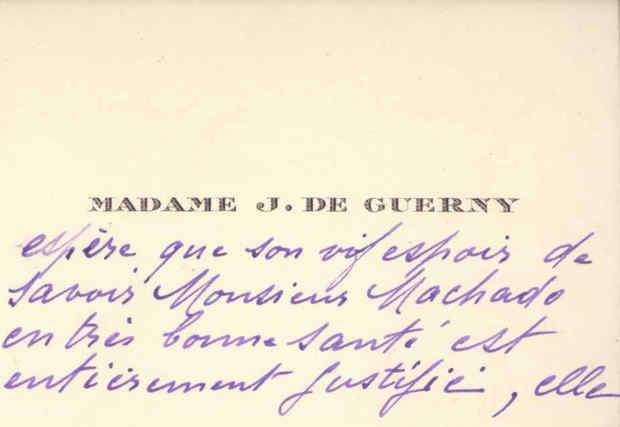 MADAME J. DE GUERNY
espère que son vif espoir de
savoir Monsieur Machado
en très bonne santé est
entièrement justifié, elle